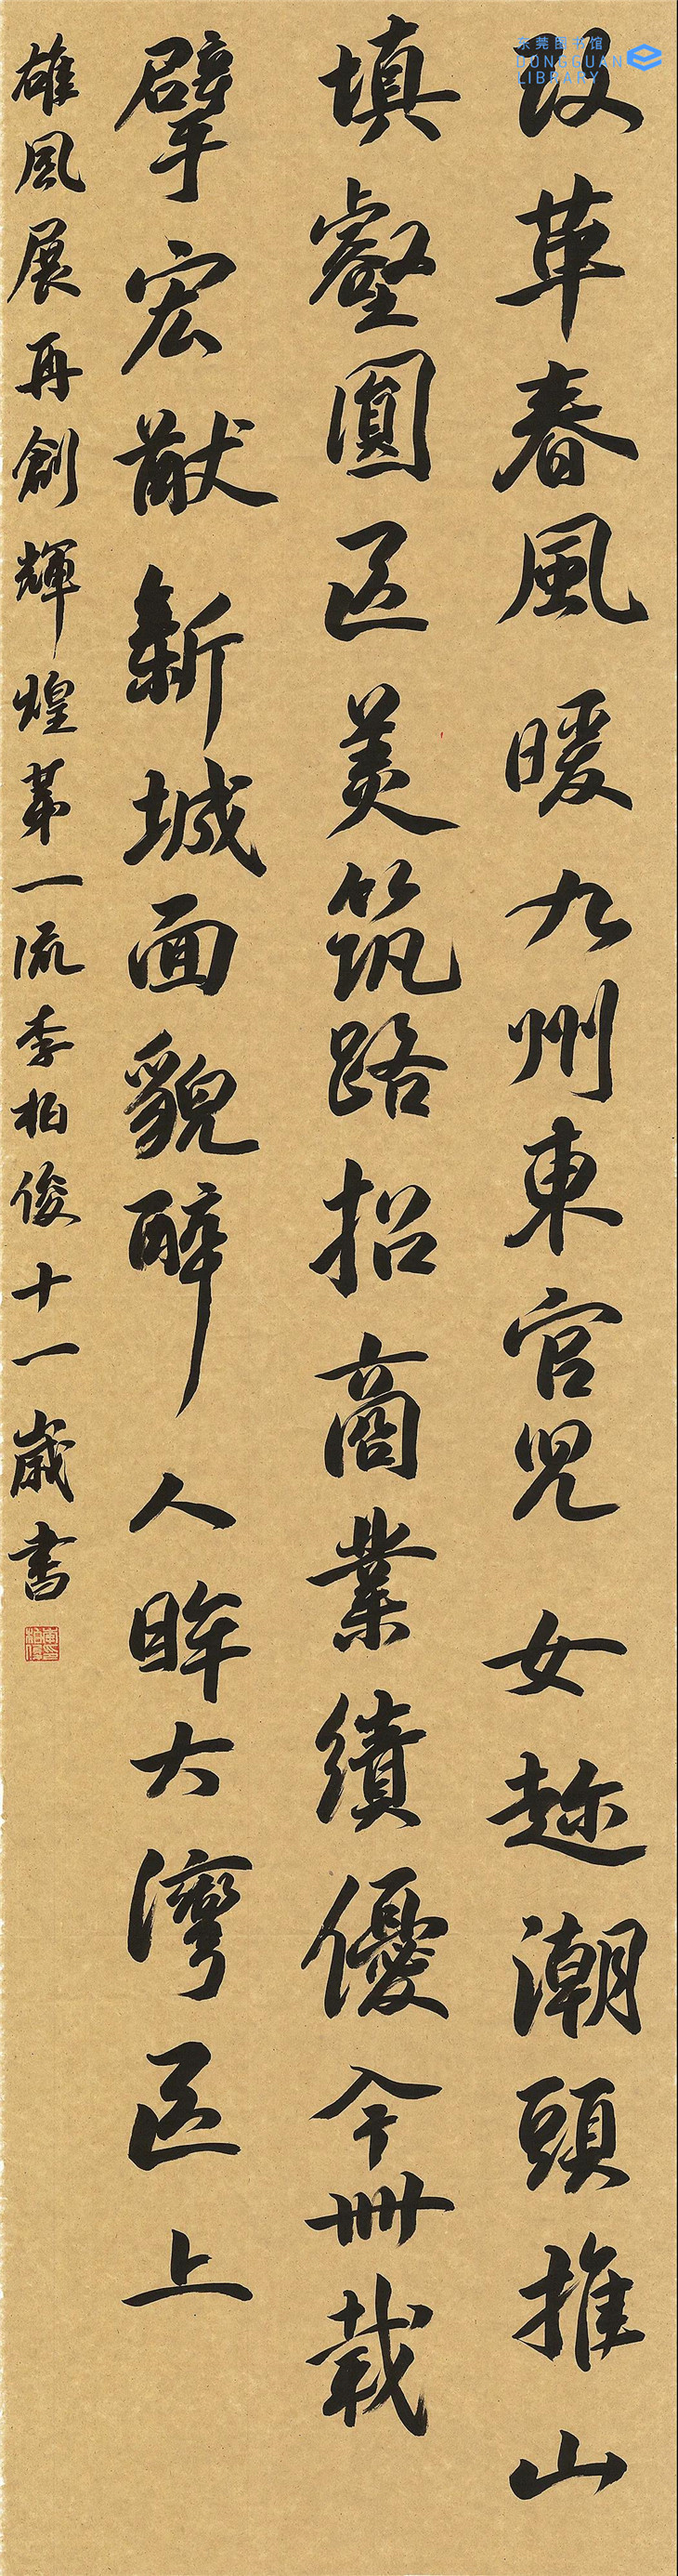 改革春風暖九州東官兒女趂潮頭推山
填壑園區美筑路招商業績優今卌載
擘宏猷新城面貌醉人眸大灣區上
雄風展再創輝煌苐一流李柏俊十一歲書
东莞图书馆
DONGGUAN
LIBRARY